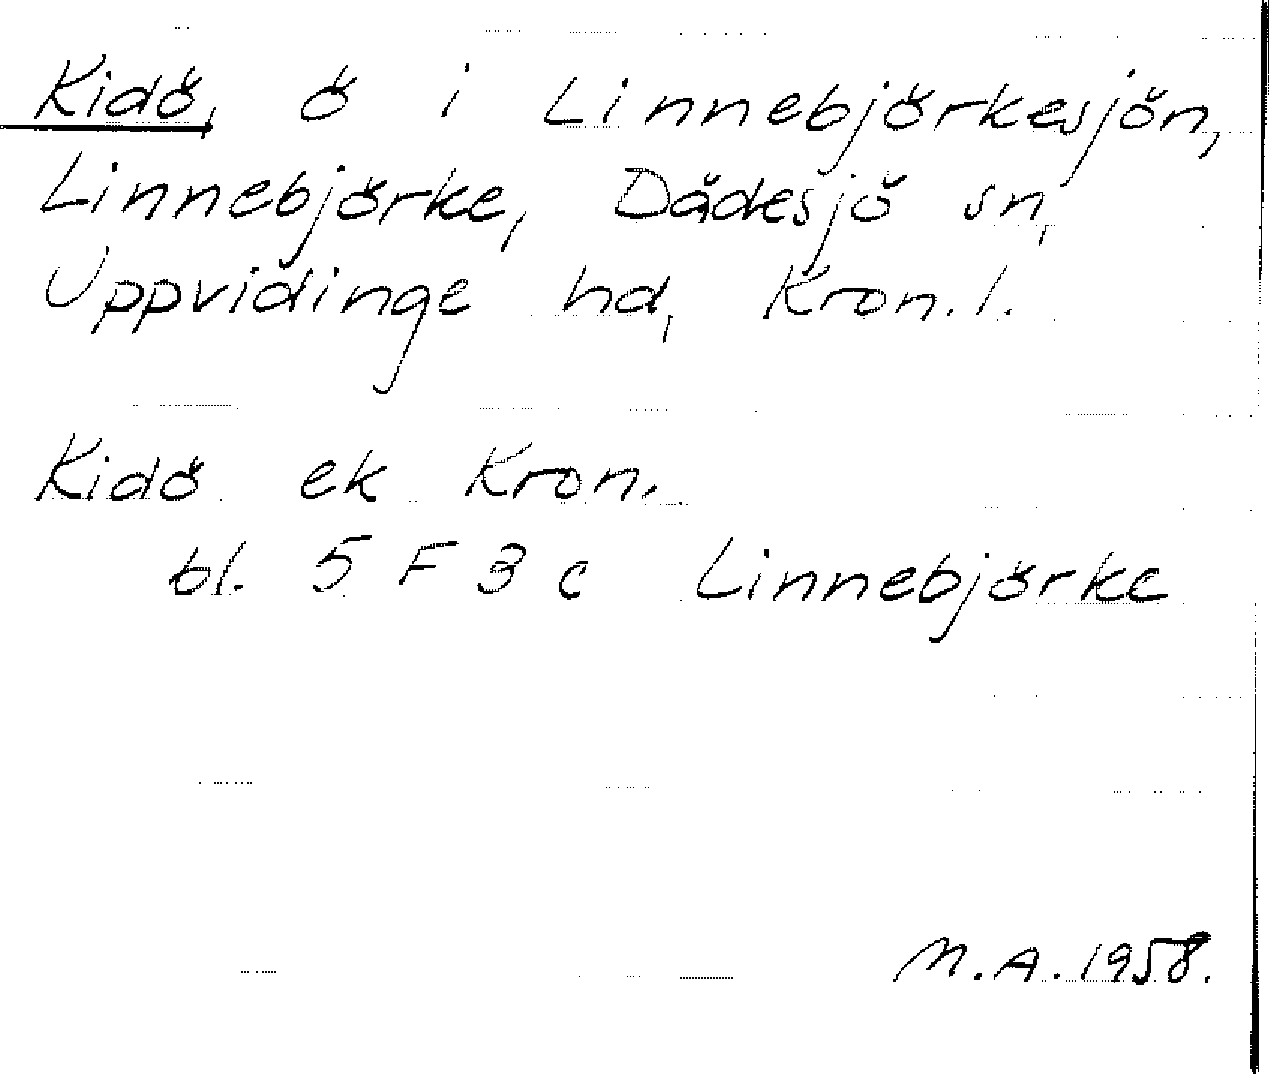 Kidö, ö i Linnebjörkesjön,
Linnebjörke, Dädesjö sn,
Uppvidinge hd, Kron. l.
Kidö ek Kron.
bl. 5 F 3 c Linnebjörke
M.A. 1958.